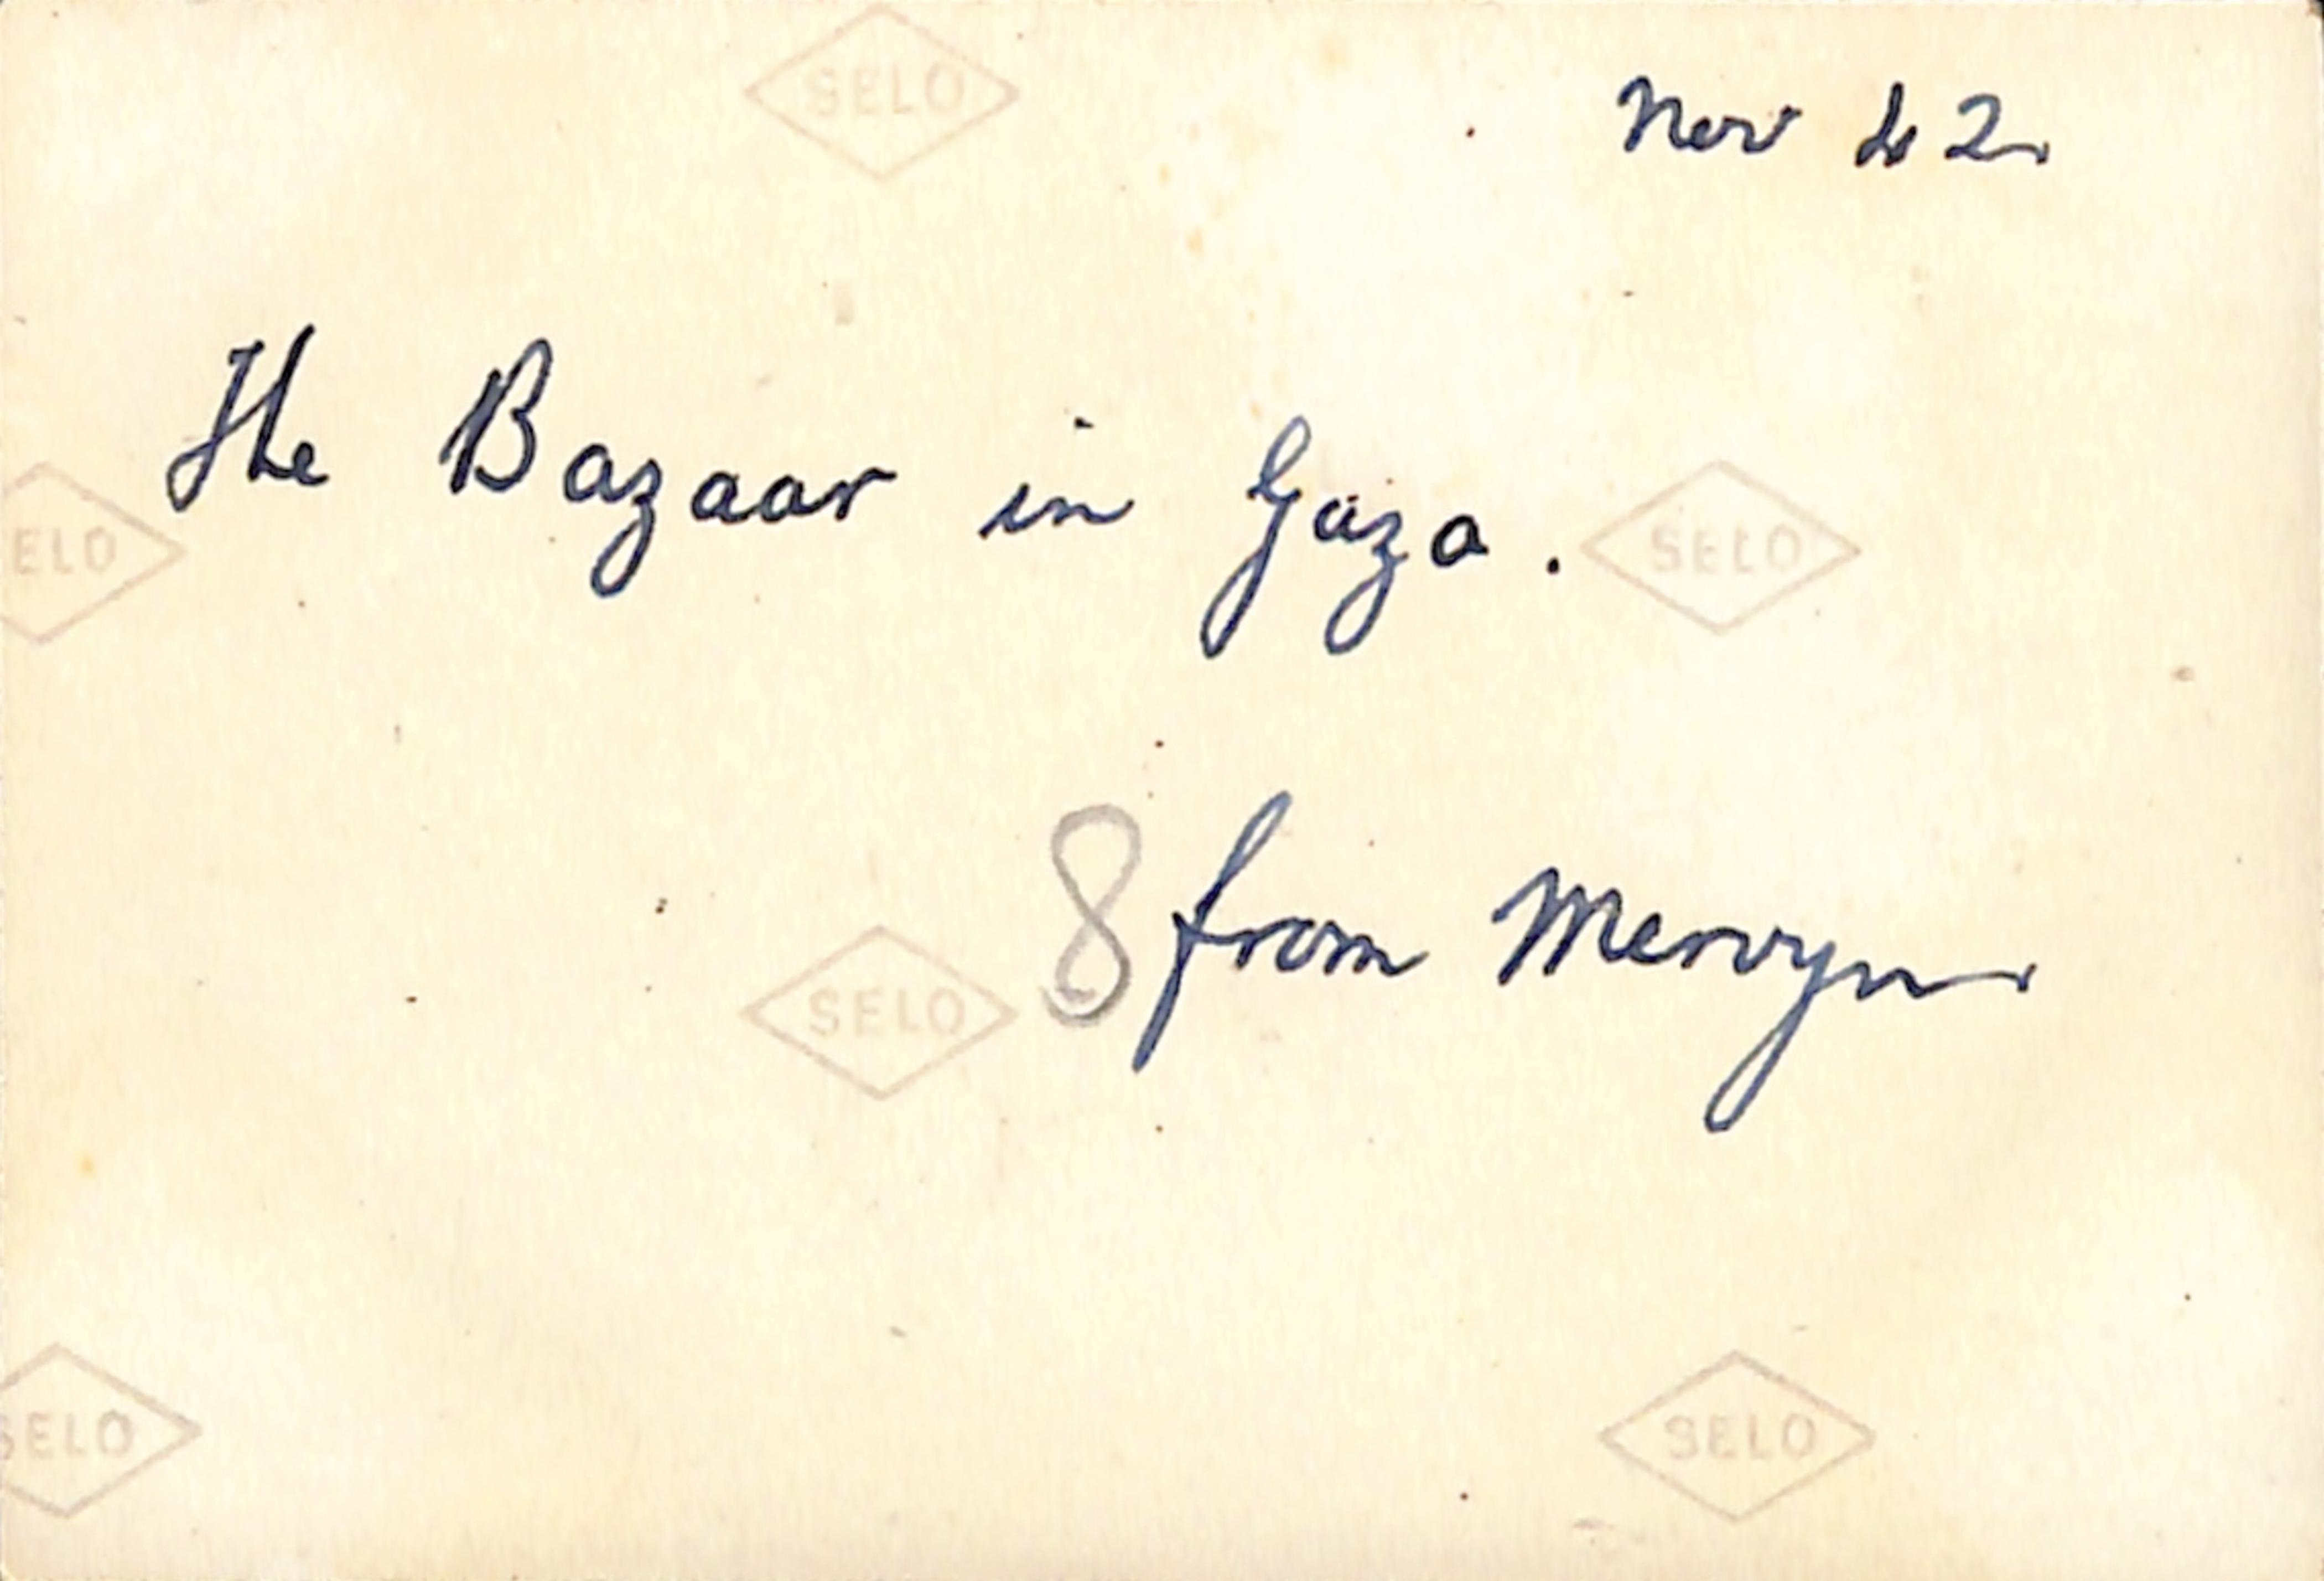 SELO
Nov 42
The Bazaar in Gaza.
ELO
SELO
8 from Mervyn
SELO
SELO
SELO